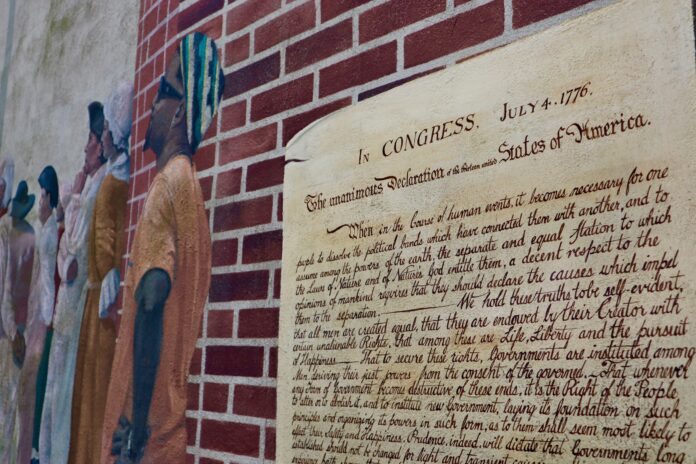 In CONGRESS, July 4, 1776.
The unanimous Declaration of the thirteen united States of America.
When in the Course of human events, it becomes necessary for one
people to dissolve the political bands which have connected them with another, and to
assume among the powers of the earth, the separate and equal Station to which
the Laws of Nature and of Nature's God entitle them, a decent respect to the
opinions of mankind requires that they should declare the causes which impel
them to the separation. We hold these truths to be self-evident,
that all men are created equal, that they are endowed by their Creator with
certain unalienable Rights, that among these are Life, Liberty and the pursuit
of Happiness. That to secure these rights, Governments are instituted among
Men, deriving their just powers from the consent of the governed, That whenever
any Form of Government becomes destructive of these ends, it is the Right of the People
to alter or to abolish it, and to institute new Government, laying its foundation on such
principles and organizing its powers in such form, as to them shall seem most likely to
effect their Safety and Happiness. Prudence, indeed, will dictate that Governments long
established should not be changed for light and transient